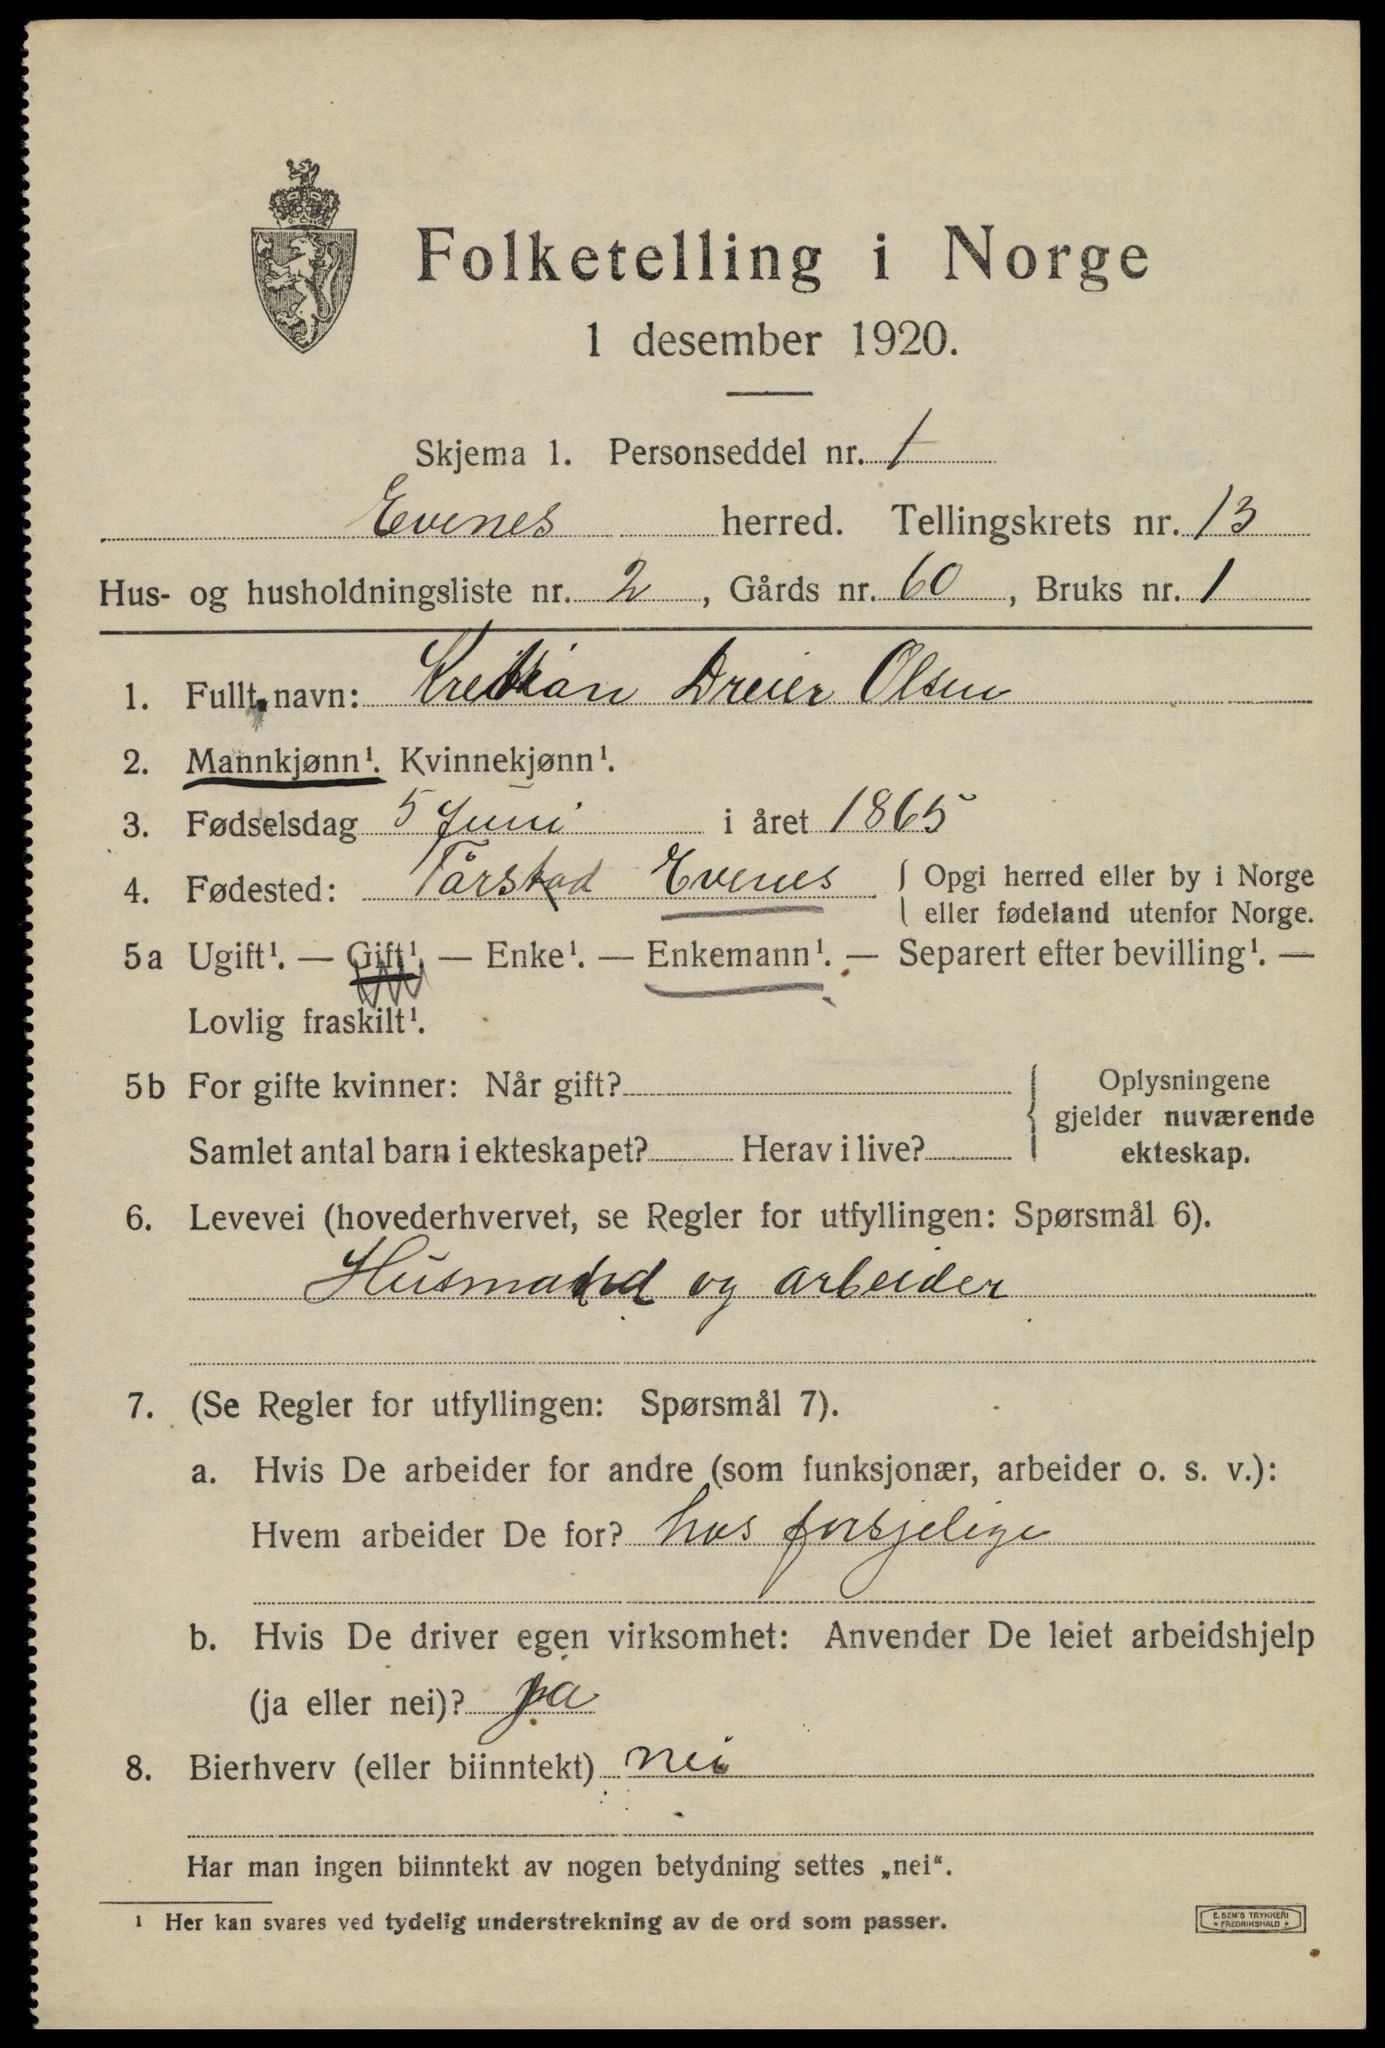 Folketelling i Norge
1 desember 1920.
Skjema 1. Personseddel nr. 1
Evenes herred. Tellingskrets nr. 13
Hus- og husholdningsliste nr. 2, Gårds nr. 60, Bruks nr. 1
1. Fullt navn: Kristian Dreier Olsen
2. Mannkjønn¹. Kvinnekjønn¹.
3. Fødselsdag 5 Juni i året 1865
4. Fødested: Tårstad Evenes { Opgi herred eller by i Norge
eller fødeland utenfor Norge.
5a Ugift¹. — Gift¹. — Enke¹. — Enkemann¹. — Separert efter bevilling¹. —
Lovlig fraskilt¹.
5b For gifte kvinner: Når gift?
Samlet antal barn i ekteskapet? Herav i live?
Oplysningene
gjelder nuværende
ekteskap.
6. Levevei (hovederhvervet, se Regler for utfyllingen: Spørsmål 6).
Husmand og arbeider
7. (Se Regler for utfyllingen: Spørsmål 7).
a. Hvis De arbeider for andre (som funksjonær, arbeider o. s. v.):
Hvem arbeider De for? hos forsjelige
b. Hvis De driver egen virksomhet: Anvender De leiet arbeidshjelp
(ja eller nei)? ja
8. Bierhverv (eller biinntekt) nei
Har man ingen biinntekt av nogen betydning settes „nei“.
¹ Her kan svares ved tydelig understrekning av de ord som passer.
E. SEM'S TRYKKERI
* FREDRIKSHALD *